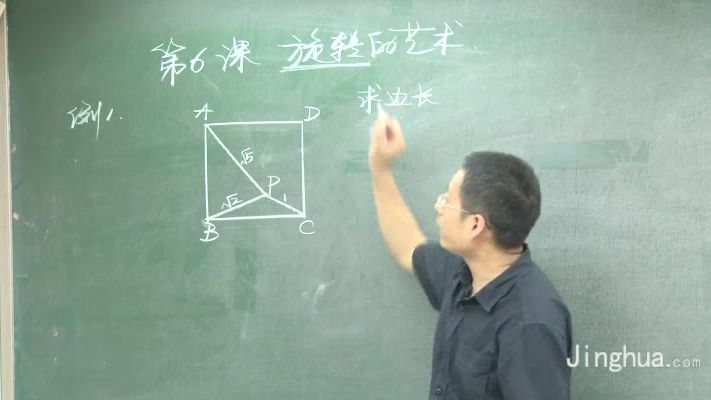 第6课 旋转的艺术.
例1.
求边长
A
D
√5
P
√2
1
B
C
Jinghua.com